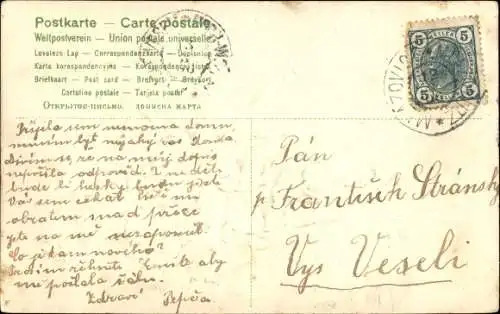 Postkarte — Carte postale
Weltpostverein — Union postale universelle
Levelezo Lap — Correspondenzkarte — Dopisnice
Karta korespondencyjna — Korespondenční lístek
Briefkaart — Post card — Brefvort — Brevkort
Cartolina postale — Tarjeta postal
Открытое письмо. Дописна карта
5 5
5 5
Přijela sem nemocna domu,
musím být nějaký čas doma
Divím se že na můj dopis
nepřišla odpověď. Z neděli
bude li hezky budu jistě
Vás sem čekat
obratem snad přece
jste na mě nezapomněl.
Co je kam nového?
Prosím řekněte Emile aby
mi poslala
Zdraví Pepča.
Pán
p František Stránský
Vys Veselí